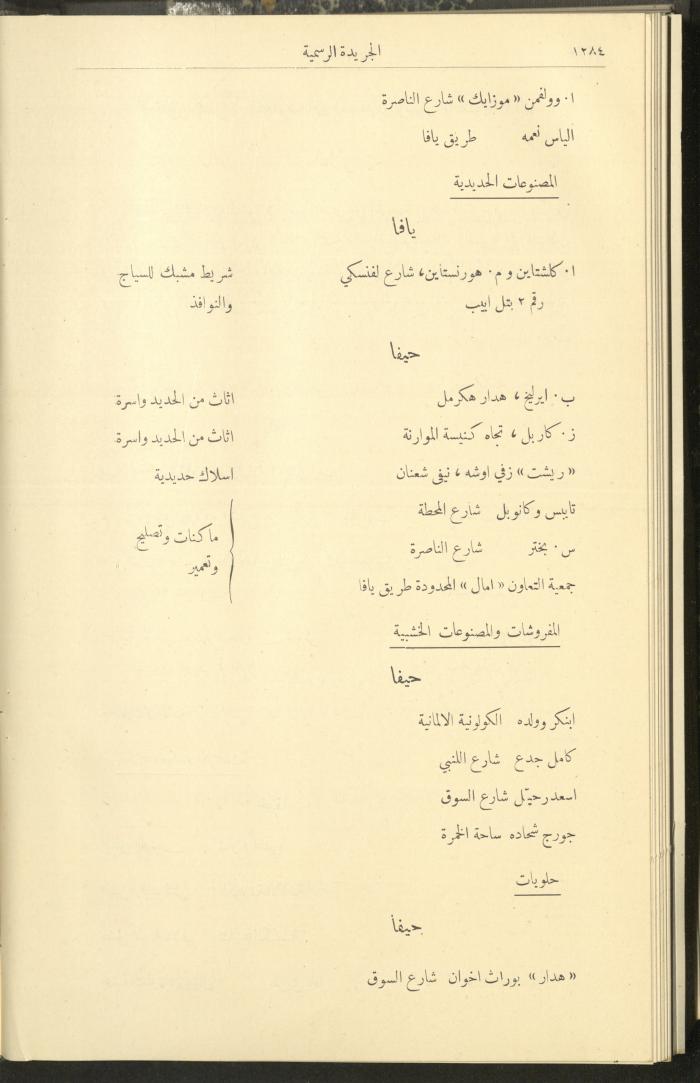 ١٢٨٤
الجريدة الرسمية
ا٠ وولفمن « موزايك » شارع الناصرة
الياس نعمه طريق يافا
المصنوعات الحديدية
يافا
ا٠ كلشتاين و م٠ هورنستاين، شارع لفنسكي شريط مشبك للسياج
رقم ٢ بتل ابيب والنوافذ
حيفا
ب٠ ايرليخ، هدار هكرمل اثاث من الحديد واسرة
ز٠ كاربل، تجاه كنيسة الموارنة اثاث من الحديد واسرة
« ريشت » زفي اوشه، نيفى شعنان اسلاك حديدية
تايبس وكانوبل شارع المحطة
س٠ بختر شارع الناصرة ماكنات وتصليح
وتعمير
جمعية التعاون « امال » المحدودة طريق يافا
المفروشات والمصنوعات الخشبية
حيفا
ابنكر وولده الكولونية الالمانية
كامل جدع شارع اللنبي
اسعد رحيّل شارع السوق
جورج شحاده ساحة الخمرة
حلويات
حيفا
« هدار » بوراث اخوان شارع السوق